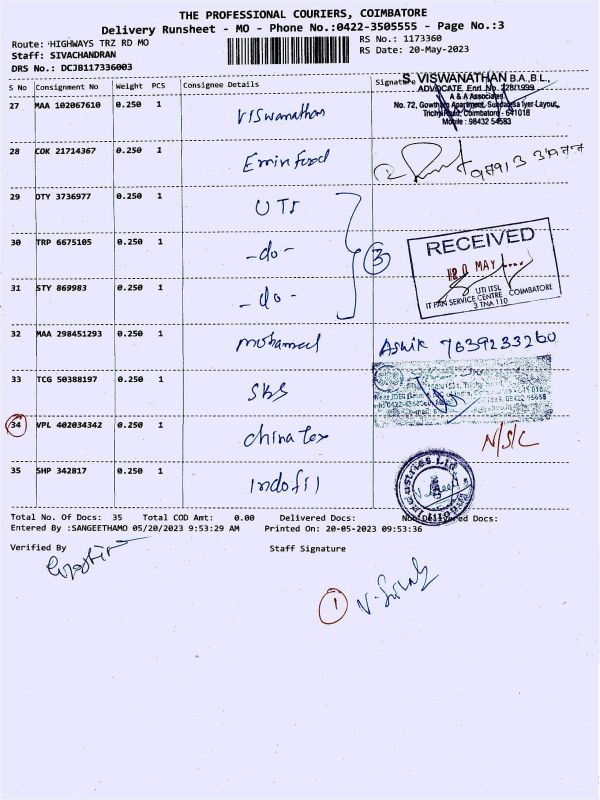 THE PROFESSIONAL COURIERS, COIMBATORE
Delivery Runsheet - MO - Phone No.:0422-3505555 - Page No.:3
Route: HIGHWAYS TRZ RD MO
RS No.: 1173360
Staff: SIVACHANDRAN
RS Date: 20-May-2023
DRS No.: DCJB117336003
S No Consignment No Weight PCS Consignee Details Signature
27 MAA 102067610 0.250 1 Viswanathan
S. VISWANATHAN B.A.,B.L.,
ADVOCATE Enrl. No. 728/1999
A & A Associates
No. 72, Gowtham Apartment, Sundaresa Iyer Layout,
Trichy Road, Coimbatore - 641018
Mobile : 98432 54583
28 COK 21714367 0.250 1 Emin food
97913 31477
29 DTY 3736977 0.250 1 UTI
30 TRP 6675105 0.250 1 -do- 3
31 STY 869983 0.250 1 -do-
RECEIVED
20 MAY
UTI ITSL
IT PAN SERVICE CENTRE COIMBATORE
3 TNA 110
32 MAA 298451293 0.250 1 mohameed Ashik 7639233260
33 TCG 50388197 0.250 1 SKS
34 VPL 402034342 0.250 1 china tex N/S/C
35 SHP 342817 0.250 1 Indofil
Industries Ltd
Total No. Of Docs: 35 Total COD Amt: 0.00 Delivered Docs: Non Delivered Docs:
Entered By :SANGEETHAMO 05/20/2023 9:53:29 AM Printed On: 20-05-2023 09:53:36
Verified By Staff Signature
1